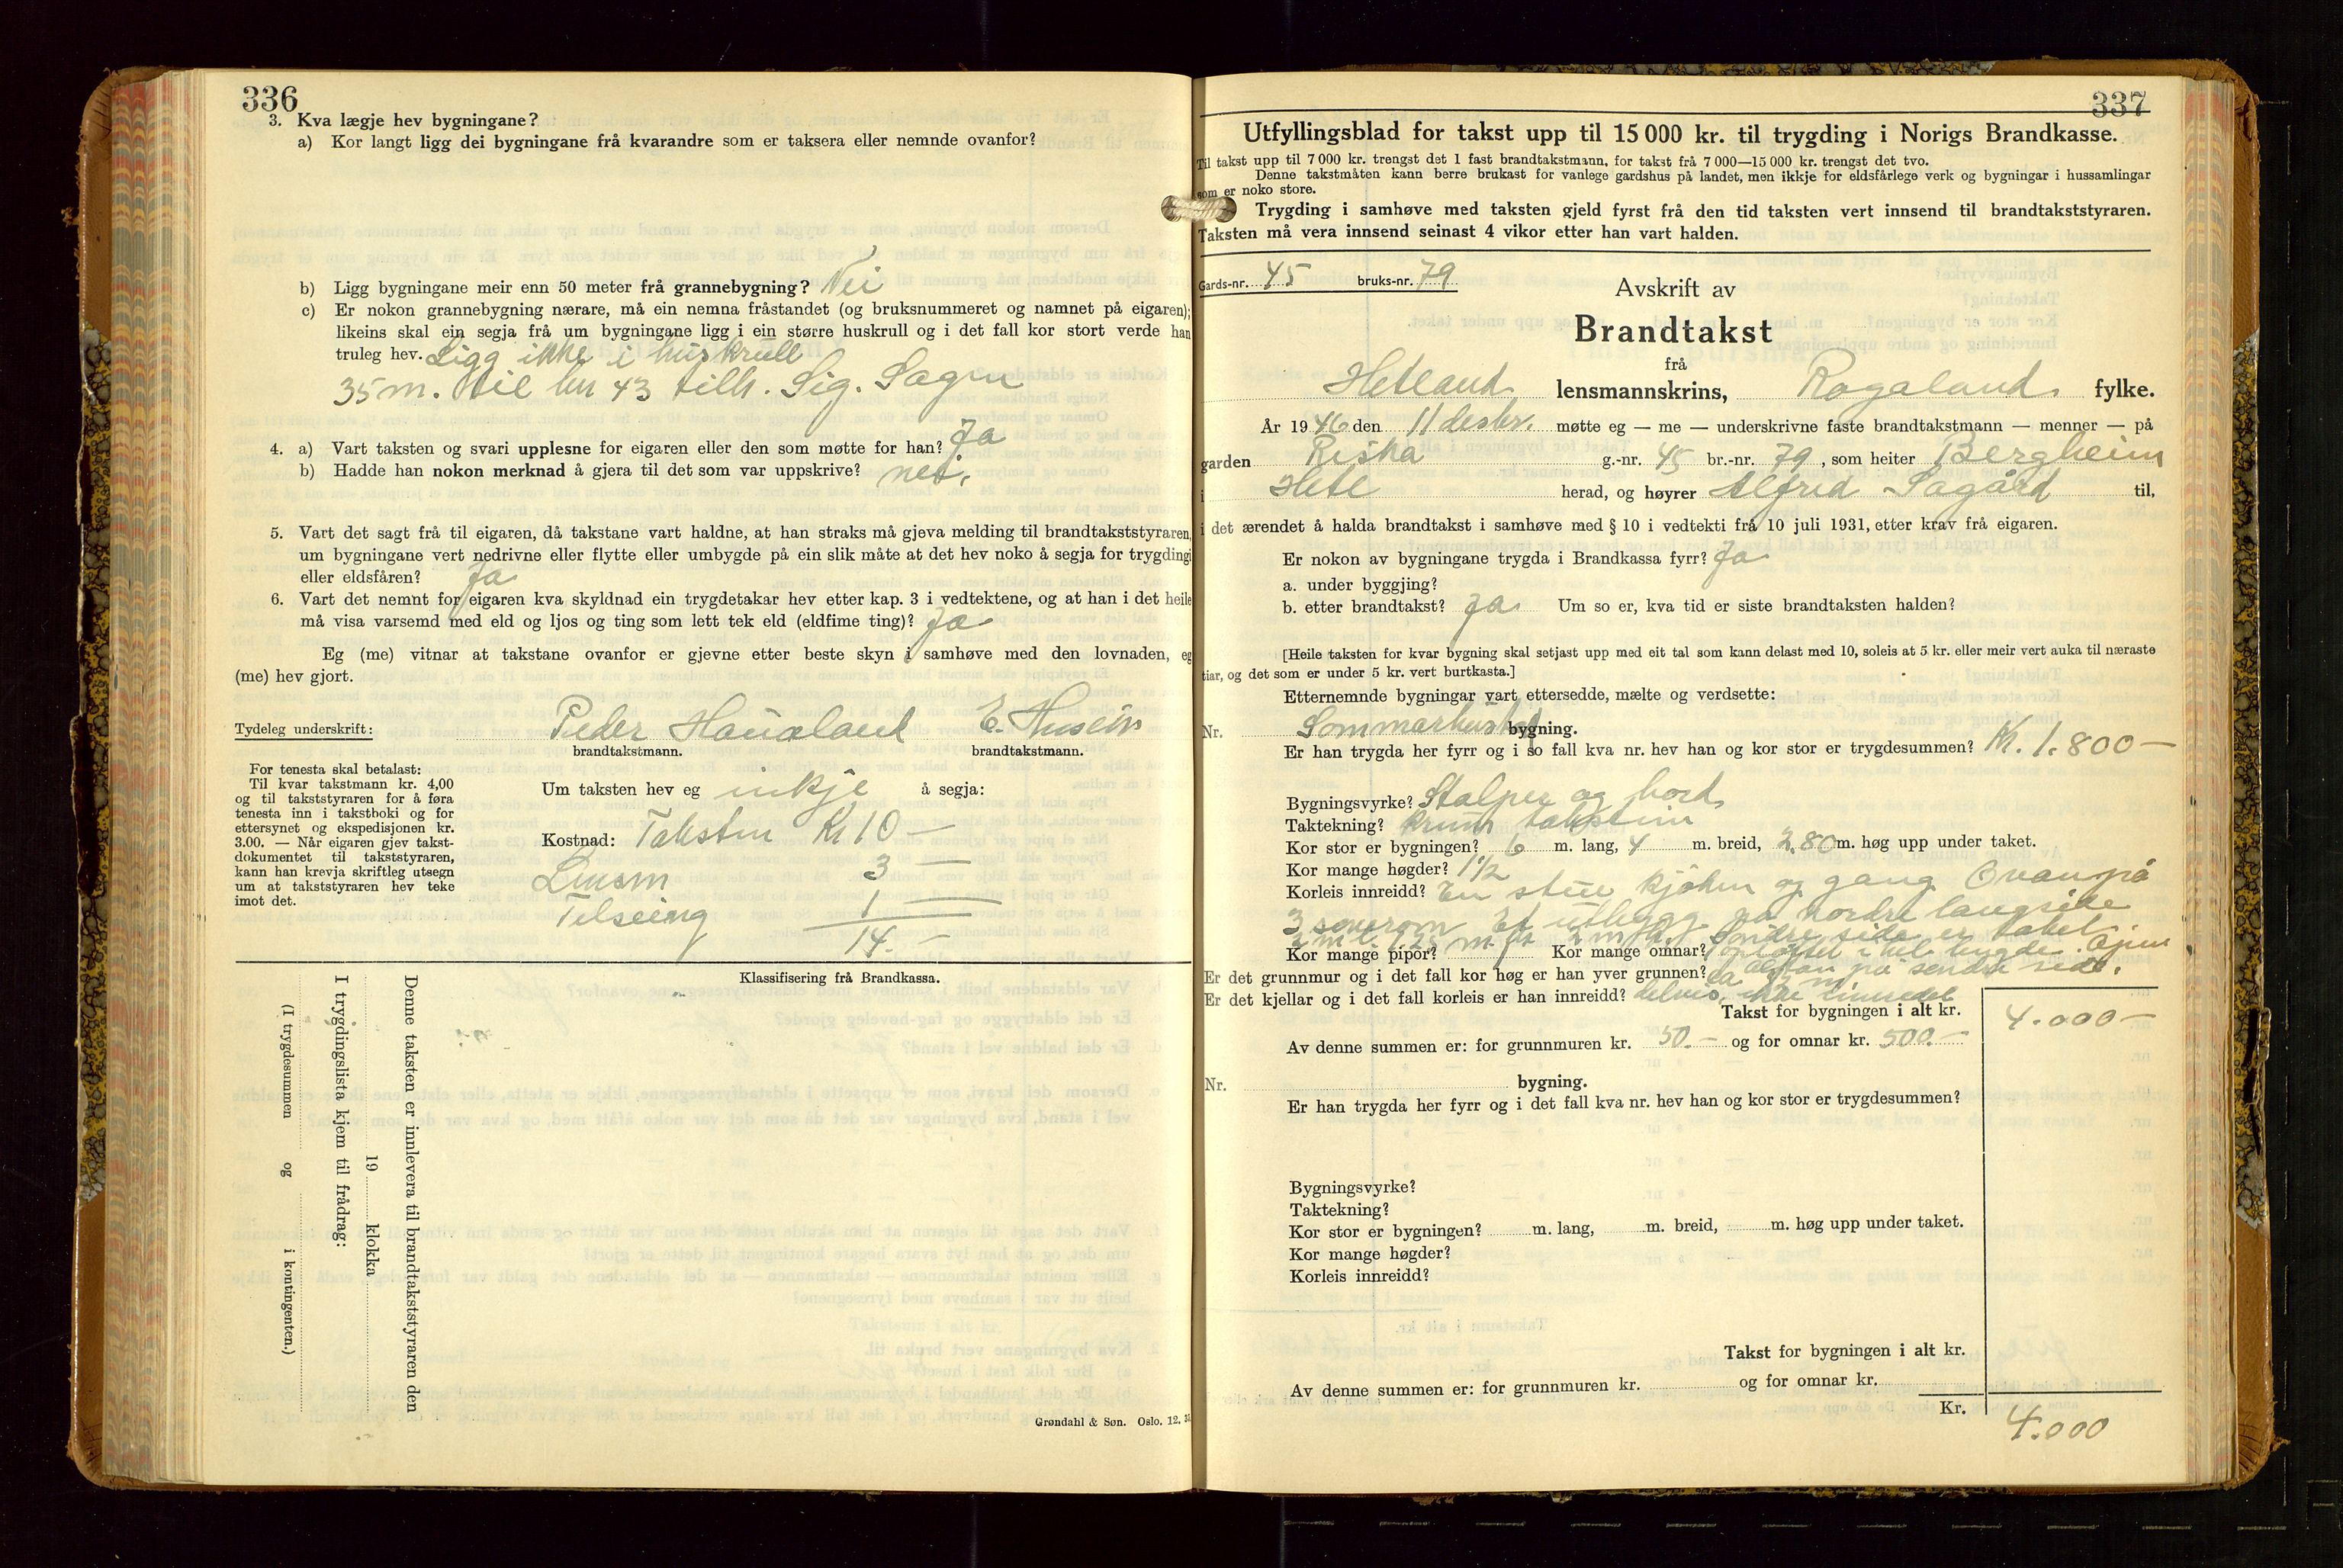 336
3. Kva lægje hev bygningane?
a) Kor langt ligg dei bygningane frå kvarandre som er taksera eller nemnde ovanfor?
b) Ligg bygningane meir enn 50 meter frå grannebygning? Nei
c) Er nokon grannebygning nærare, må ein nemna fråstandet (og bruksnummeret og namnet på eigaren);
likeins skal ein segja frå um bygningane ligg i ein større huskrull og i det fall kor stort verde han
truleg hev. Ligg ikke i huskrull
35 m. til bn 43 tilh. Sig. Sagen
4. a) Vart taksten og svari upplesne for eigaren eller den som møtte for han? Ja
b) Hadde han nokon merknad å gjera til det som var uppskrive? nei.
5. Vart det sagt frå til eigaren, då takstane vart haldne, at han straks må gjeva melding til brandtakststyraren,
um bygningane vert nedrivne eller flytte eller umbygde på ein slik måte at det hev noko å segja for trygdingi
eller eldsfåren? Ja
6. Vart det nemnt for eigaren kva skyldnad ein trygdetakar hev etter kap. 3 i vedtektene, og at han i det heile
må visa varsemd med eld og ljos og ting som lett tek eld (eldfime ting)? Ja
Eg (me) vitnar at takstane ovanfor er gjevne etter beste skyn i samhøve med den lovnaden, eg
(me) hev gjort.
Tydeleg underskrift: Peder Haualand E. Husebø
brandtakstmann. brandtakstmann.
For tenesta skal betalast:
Til kvar takstmann kr. 4,00
og til takststyraren for å føra
tenesta inn i takstboki og for
ettersynet og ekspedisjonen kr.
3.00. — Når eigaren gjev takst-
dokumentet til takststyraren,
kann han krevja skriftleg utsegn
um at takststyraren hev teke
imot det.
Um taksten hev eg inkje å segja:
Kostnad: Taksten Kr 10 —
Lensm 3 —
1 —
14. —
Klassifisering frå Brandkassa.
Denne taksten er innlevera til brandtakststyraren den
19 klokka
I trygdingslista kjem til frådrag:
(I trygdesummen og i kontingenten.)
Grøndahl & Søn. Oslo. 12.
337
Utfyllingsblad for takst upp til 15 000 kr. til trygding i Norigs Brandkasse.
Til takst upp til 7 000 kr. trengst det 1 fast brandtakstmann, for takst frå 7 000—15 000 kr. trengst det tvo.
Denne takstmåten kann berre brukast for vanlege gardshus på landet, men ikkje for eldsfårlege verk og bygningar i hussamlingar
som er noko store.
Trygding i samhøve med taksten gjeld fyrst frå den tid taksten vert innsend til brandtakststyraren.
Taksten må vera innsend seinast 4 vikor etter han vart halden.
Gards-nr. 45 bruks-nr. 79
Avskrift av
Brandtakst
frå
Hetland lensmannskrins, Rogaland fylke.
År 1946 den 11 desbr. møtte eg — me — underskrivne faste brandtakstmann — menner — på
garden Riska g.-nr. 45 br.-nr. 79, som heiter Bergheim
i Hetl herad, og høyrer Alfred Sagård til,
i det ærendet å halda brandtakst i samhøve med § 10 i vedtekti frå 10 juli 1931, etter krav frå eigaren.
Er nokon av bygningane trygda i Brandkassa fyrr? Ja
a. under byggjing?
b. etter brandtakst? Ja Um so er, kva tid er siste brandtaksten halden?
[Heile taksten for kvar bygning skal setjast upp med eit tal som kann delast med 10, soleis at 5 kr. eller meir vert auka til næraste
tiar, og det som er under 5 kr. vert burtkasta.]
Etternemnde bygningar vart ettersedde, mælte og verdsette:
Nr. Sommarhuset bygning.
Er han trygda her fyrr og i so fall kva nr. hev han og kor stor er trygdesummen? Kr. 1.800 —
Bygningsvyrke? Stolper og bord
Taktekning? krum taksten
Kor stor er bygningen? 6 m. lang, 4 m. breid, 2,80 m. høg upp under taket.
Kor mange høgder? 1 1/2
Korleis innreidd? En stue kjøken og gang Ovanpå
3 soverom Et utbygg på nordre langside
Søndre side er taket
Kor mange pipor? 1 Kor mange omnar?
Er det grunnmur og i det fall kor høg er han yver grunnen? på søndre side.
Er det kjellar og i det fall korleis er han innreidd? delvis, ikke innredet
Takst for bygningen i alt kr. 4.000 —
Av denne summen er: for grunnmuren kr. 50. — og for omnar kr. 500. —
Nr. bygning.
Er han trygda her fyrr og i det fall kva nr. hev han og kor stor er trygdesummen?
Bygningsvyrke?
Taktekning?
Kor stor er bygningen? m. lang, m. breid, m. høg upp under taket.
Kor mange høgder?
Korleis innreidd?
Takst for bygningen i alt kr.
Av denne summen er: for grunnmuren kr. og for omnar kr.
Kr. 4.000